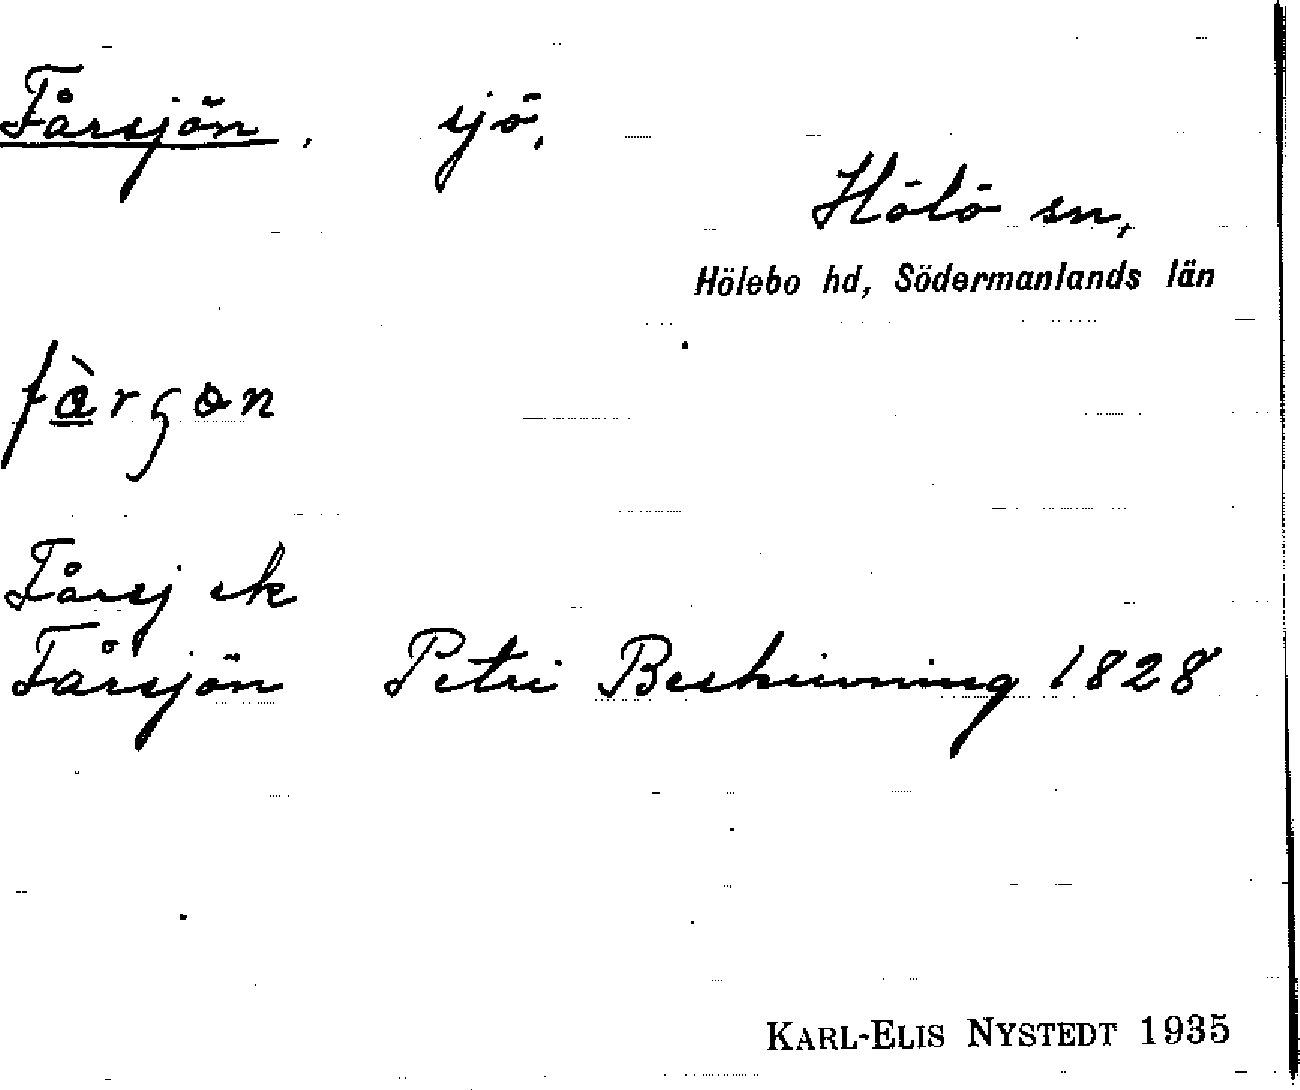 Fårsjön, sjö,
Hölö sn,
Hölebo hd, Södermanlands län
fàrʂɵn
Fårsj ek
Fårsjön Petri Beskrivning 1828
KARL-ELIS NYSTEDT 1935